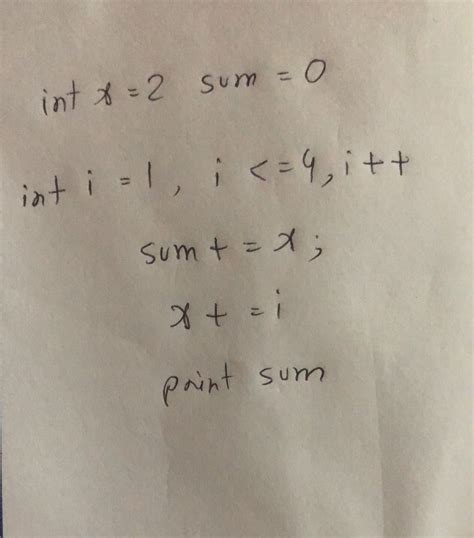 int x = 2 sum = 0
int i = 1, i <= 4, i ++
sum + = x;
x + = i
print sum